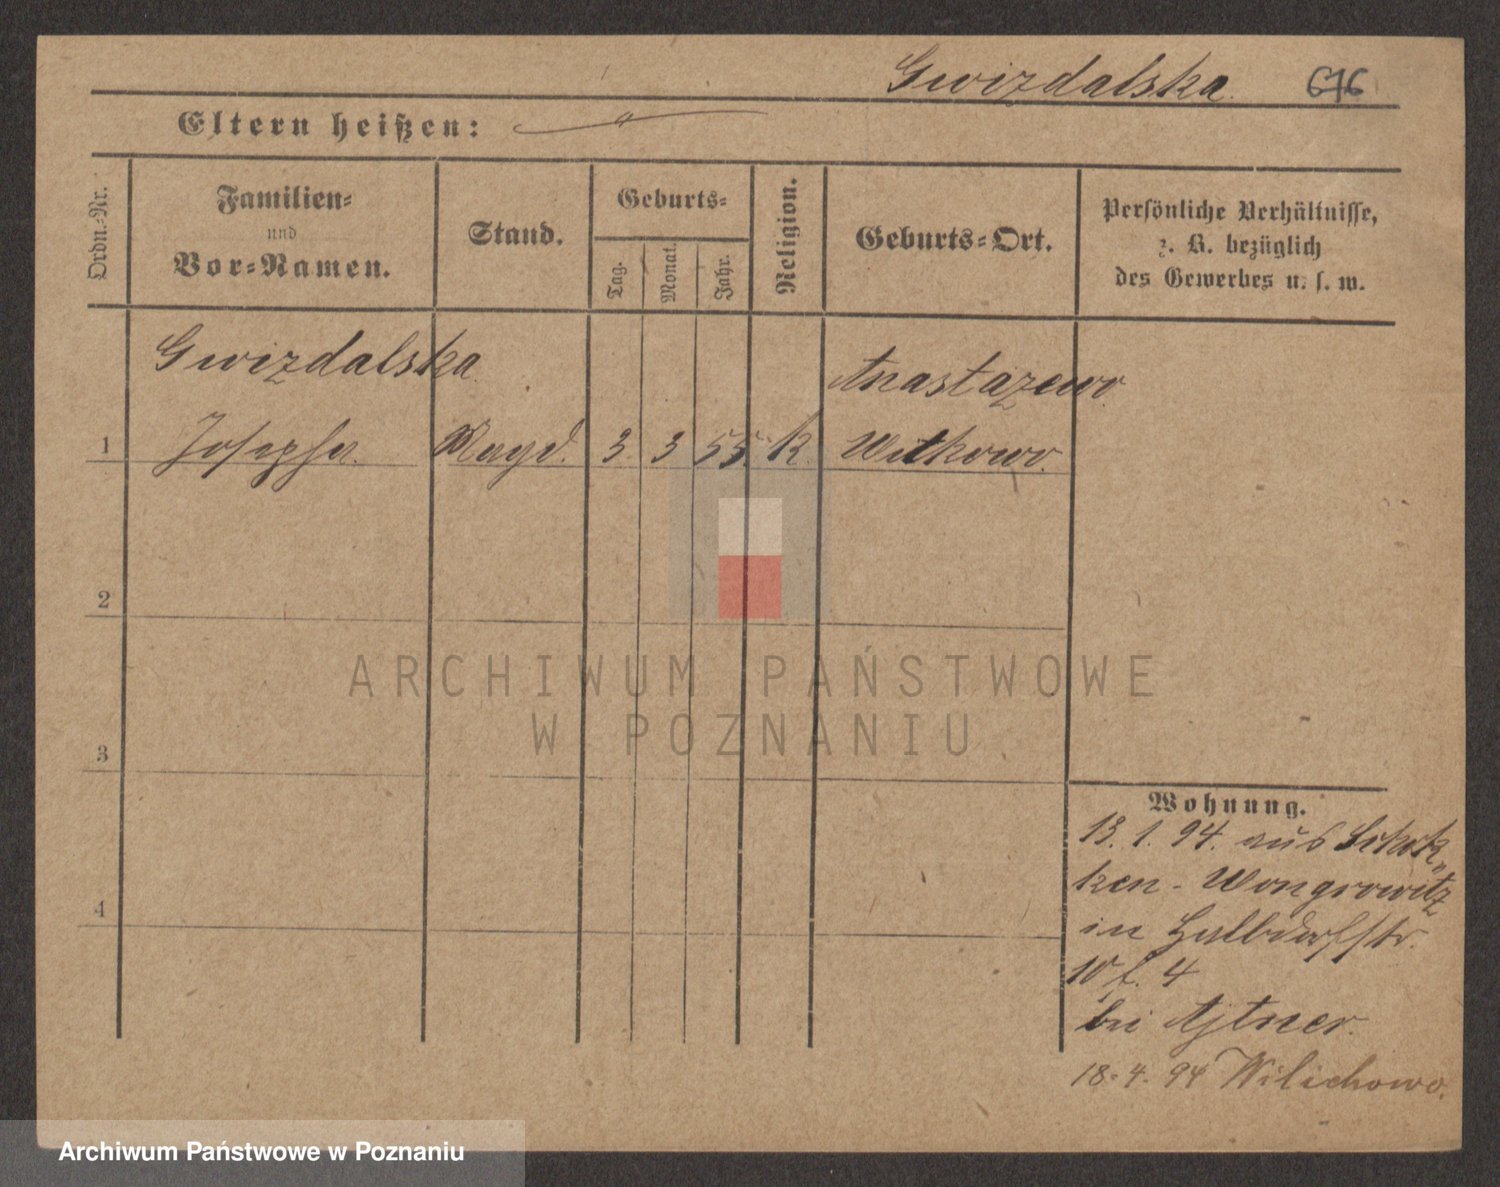 Gwizdalska 676
Eltern heißen:
Ordn.-Nr.
Familien-
und
Vor-Namen.
Stand.
Geburts-
Tag.
Monat.
Jahr.
Religion.
Geburts-Ort.
Persönliche Verhältnisse,
z. B. bezüglich
des Gewerbes u. s. w.
Gwizdalska
Anastazewo
1 Josepha Magd. 3. 3 55. k. Witkowo.
2
3
4
Wohnung.
13. 1. 94. aus Schok„
ken - Wongrowitz
in Halbdorfstr.
10 f. 4
bei Ajtner.
18.4.94 Wilichowo.
ARCHIWUM PAŃSTWOWE
W POZNANIU
Archiwum Państwowe w Poznaniu